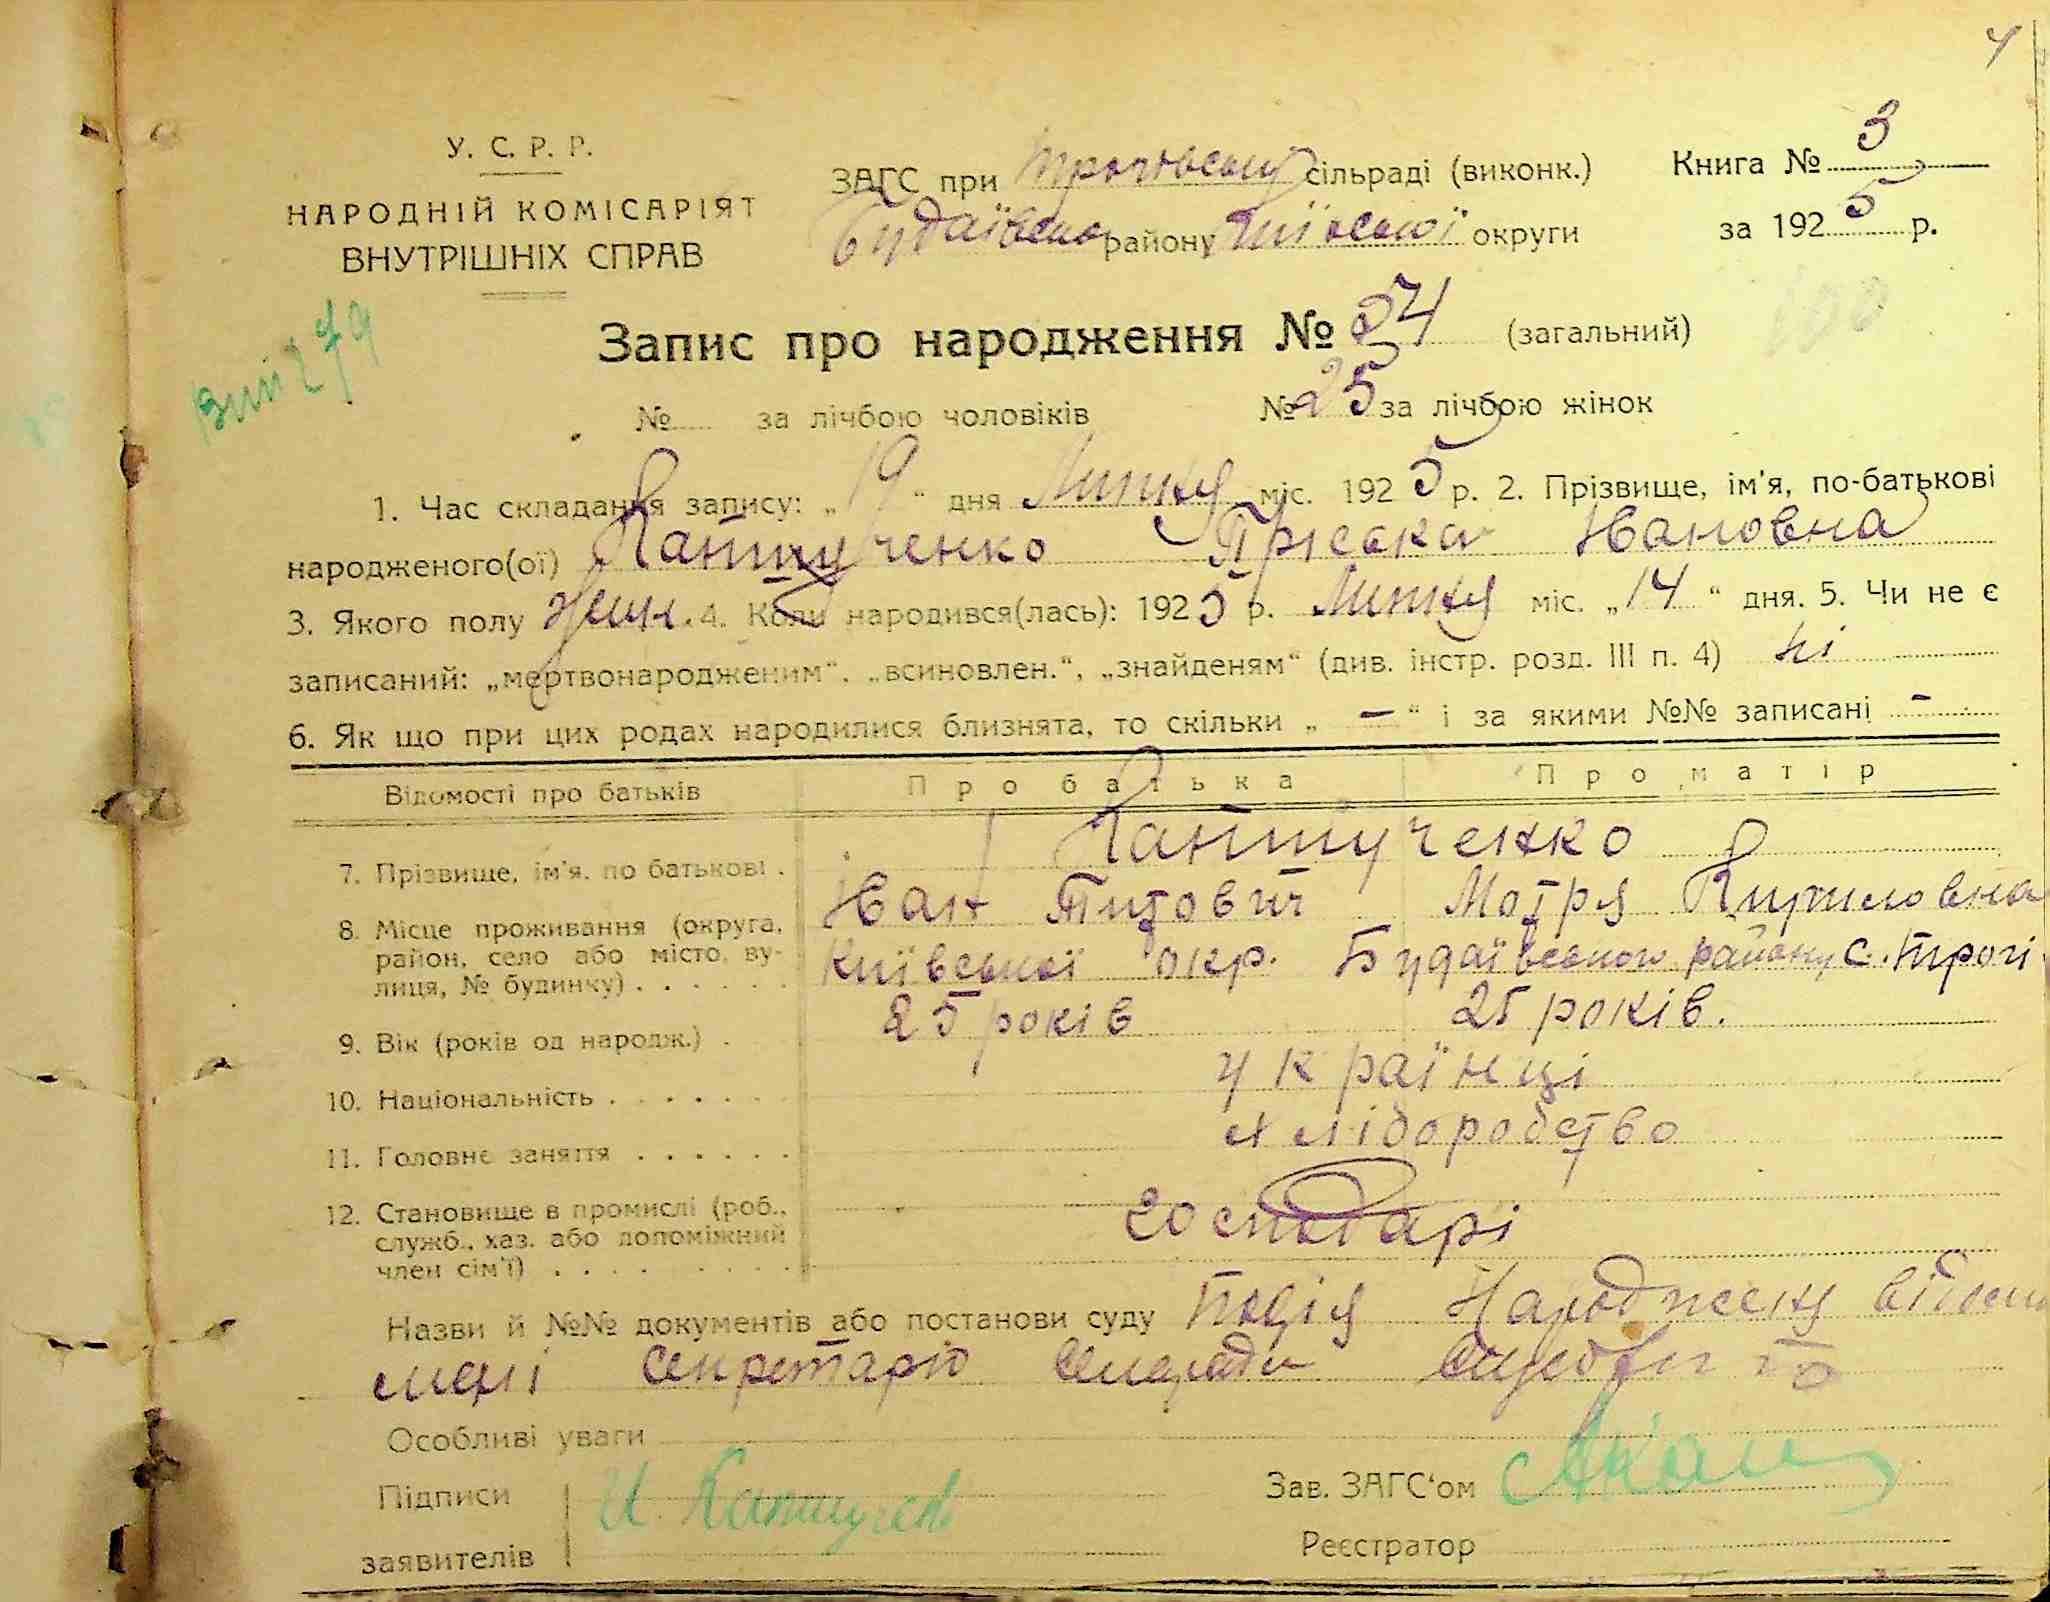 У. С. Р. Р.
НАРОДНІЙ КОМІСАРІЯТ
ВНУТРІШНІХ СПРАВ
ЗАГС при сільраді (виконк.)
Будаївсько району Київської округи
Книга № 3
за 1925 р.
Запис про народження № 24 (загальний)
№ за лічбою чоловіків № 25 за лічбою жінок
1. Час складання запису: „19“ дня Липня міс. 1925 р. 2. Прізвище, ім'я, по-батькові
народженого(ої) Каптученко Пріська Івановна
3. Якого полу жін. 4. Коли народився(лась): 1925 р. Липня міс. „14“ дня. 5. Чи не є
записаний: „мертвонародженим“, „всиновлен.“, „знайденям“ (див. інстр. розд. III п. 4) ні
6. Як що при цих родах народилися близнята, то скільки „ — “ і за якими №№ записані -
Відомості про батьків Про батька Про матір
7. Прізвище, ім'я, по батькові . Каптученко
Іван Титович Мотря Кириловна
8. Місце проживання (округа, район, село або місто, вулиця, № будинку) . . . . . . Київської окр. Будаївського району с.
9. Вік (років од народж.) . 25 років 25 років.
10. Національність . . . . . . . українці
11. Головне заняття . . . . . . хліборобство
12. Становище в промислі (роб., служб., хаз. або допоміжний член сім'ї) . . . . . . . . господарі
Назви й №№ документів або постанови суду Подія Народженя
мені секретарю
Особливі уваги
Підписи
заявителів
Зав. ЗАГС'ом
Реєстратор